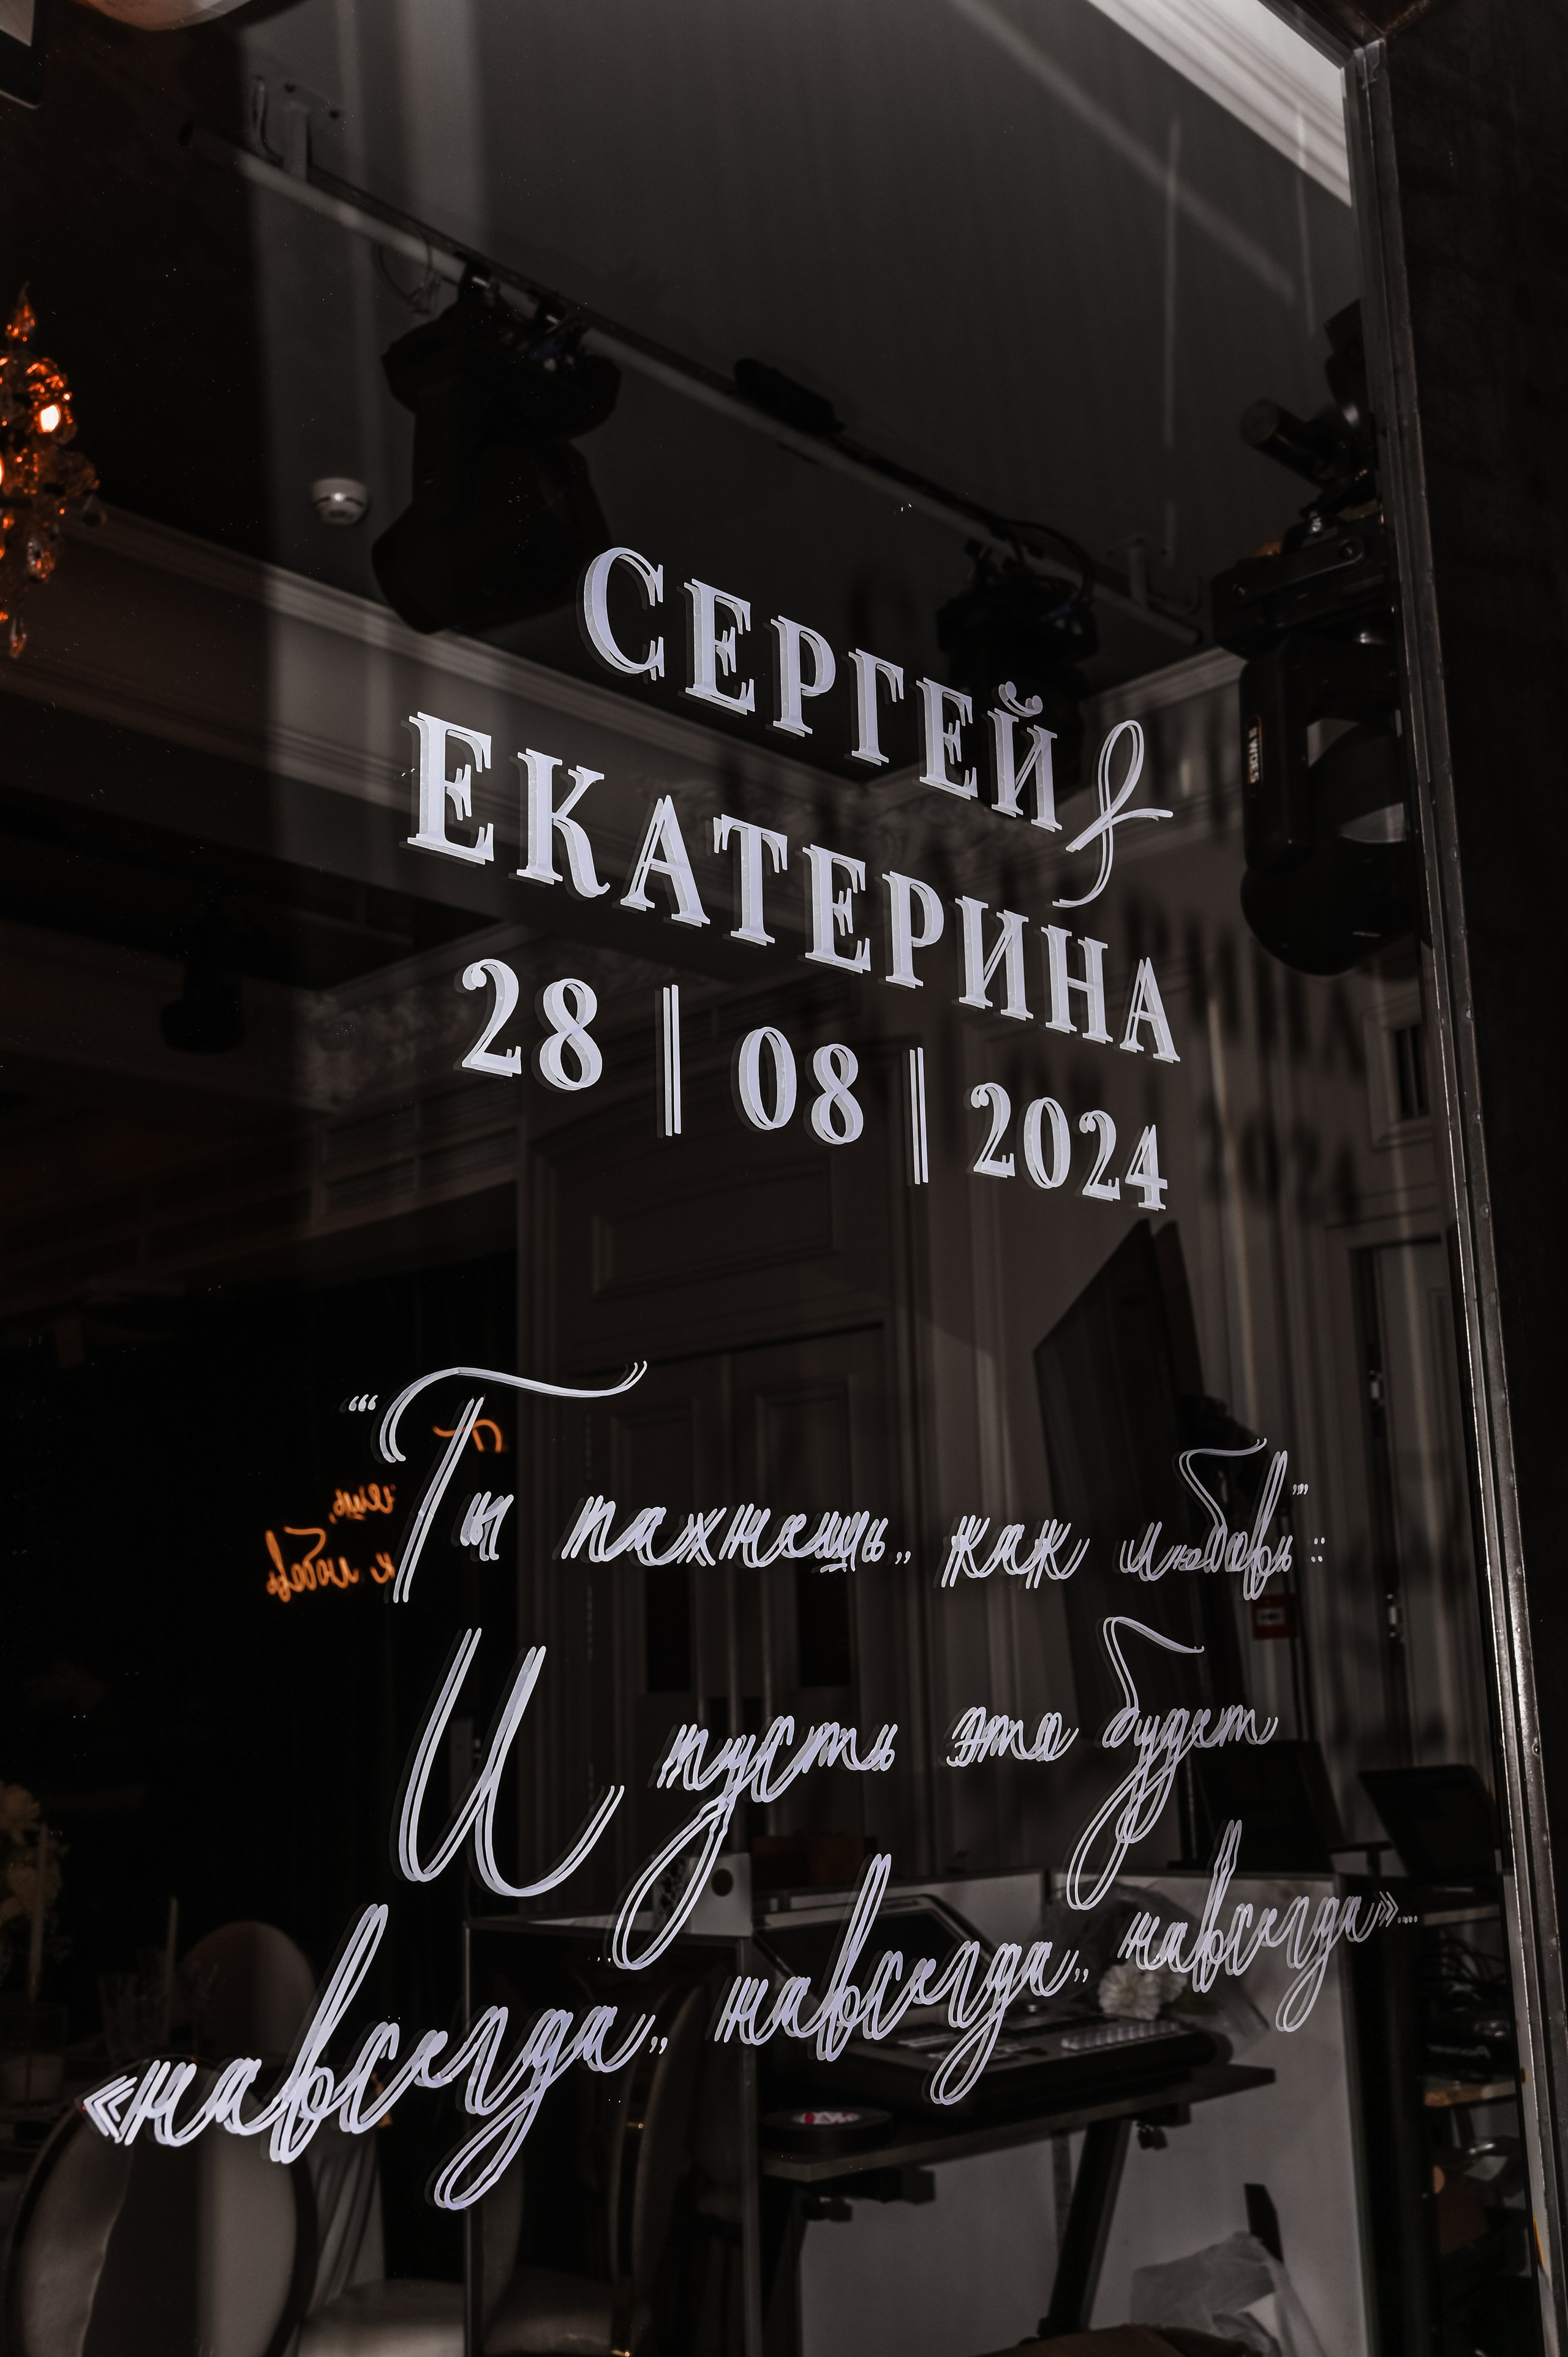 СЕРГЕЙ &
ЕКАТЕРИНА
28 | 08 | 2024
“Ты пахнешь, как любовь”.
И пусть это будет
«навсегда, навсегда, навсегда»..